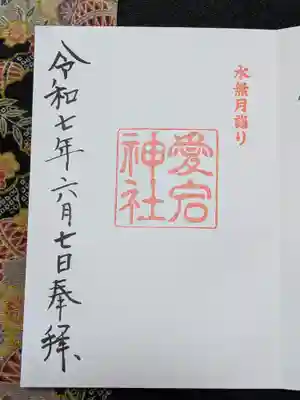 水無月詣り
愛宕
神社
令和七年六月七日奉拝、